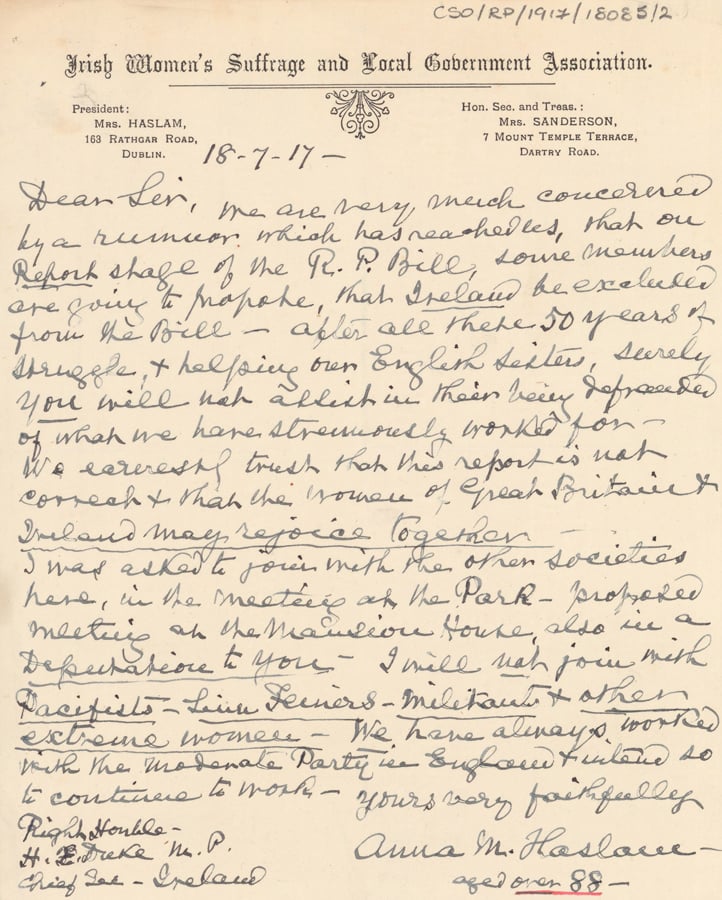 CSO/RP/1917/18085/2
Irish Women's Suffrage and Local Government Association.
President:
MRS. HASLAM,
163 RATHGAR ROAD,
DUBLIN.
Hon. Sec. and Treas.:
MRS. SANDERSON,
7 MOUNT TEMPLE TERRACE,
DARTRY ROAD.
18-7-17-
Dear Sir, we are very much concerned
by a rumour which has reached us, that on
Report stage of the R. P. Bill, some members
are going to propose, that Ireland be excluded
from the Bill - after all these 50 years of
struggle, & helping our English sisters, surely
you will not assist in their being defrauded
of what we have strenuously worked for -
We earnestly trust that this report is not
correct & that the women of Great Britain &
Ireland may rejoice together -
I was asked to join with the other societies
here, in the meeting at the Park - proposed
meeting at the Mansion House, also in a
Deputation to you - I will not join with
Pacifists - Sinn Feiners - Militants & other
extreme women - We have always worked
with the moderate Party in England & intend so
to continue to work - yours very faithfully
Right Honble -
H. E. Duke M. P.
Chief Sec - Ireland
Anna M. Haslam -
aged over 88 -